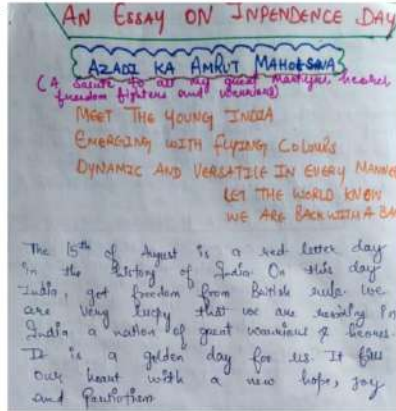 AN ESSAY ON INPENDENCE DAY
AZADI KA AMRUT MAHOTSAVA
(A salute to all my great martyrs, heores
freedom fighters and warriors)
MEET THE YOUNG INDIA
EMERGING WITH FLYING COLOURS
DYNAMIC AND VERSATILE IN EVERY MANNE
LET THE WORLD KNOW
WE ARE BACK WITH A BA
The 15th of August is a red letter day
in the history of India. On this day
India, got freedom from British rule. We
are very lucky that we are in
India a nation of great warrious & heores.
It is a golden day for us. It fills
our heart with a new hope, joy
and